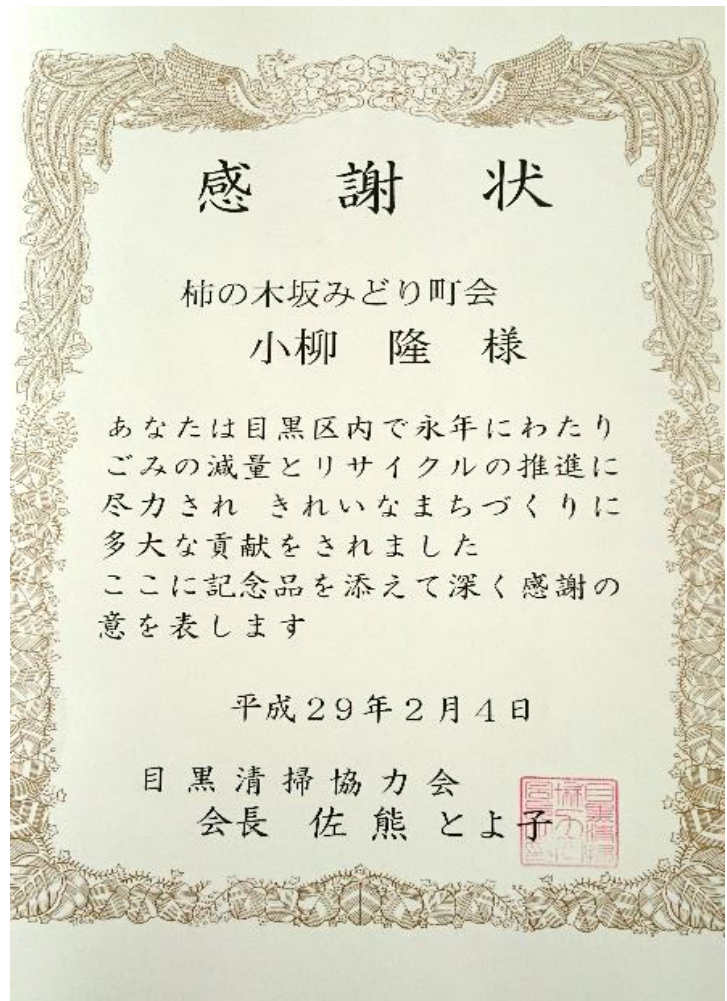 感謝状
柿の木坂みどり町会
小柳 隆 様
あなたは目黒区内で永年にわたり
ごみの減量とリサイクルの推進に
尽力され きれいなまちづくりに
多大な貢献をされました
ここに記念品を添えて深く感謝の
意を表します
平成29年2月4日
目黒清掃協力会
会長 佐熊とよ子